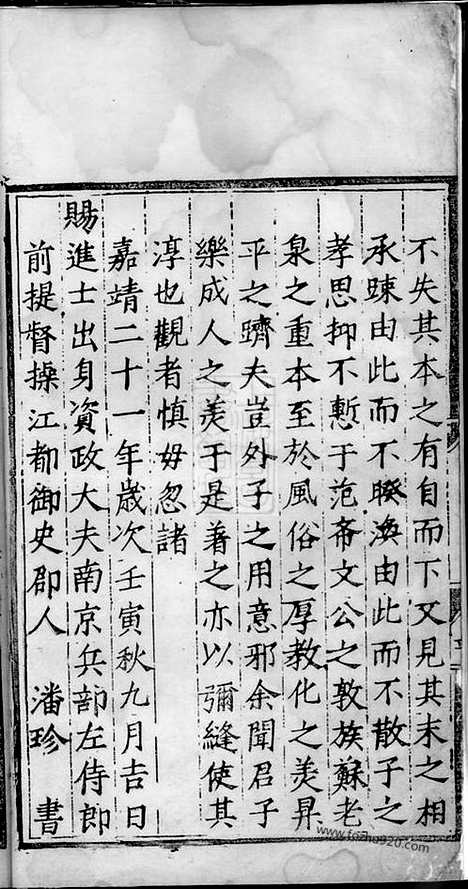 不失其本之有自而下又見其末之相
承踈由此而不睽渙由此而不散子之
孝思抑不慙于范希文公之敦族蘇老
泉之重本至於風俗之厚教化之美昇
平之躋夫豈外子之用意邪余聞君子
樂成人之美于是著之亦以彌縫使其
淳也觀者慎毋忽諸
嘉靖二十一年歲次壬寅秋九月吉日
賜進士出身資政大夫南京兵部左侍郎
前提督操江都御史郡人 潘珍 書
www.fozhu920.com